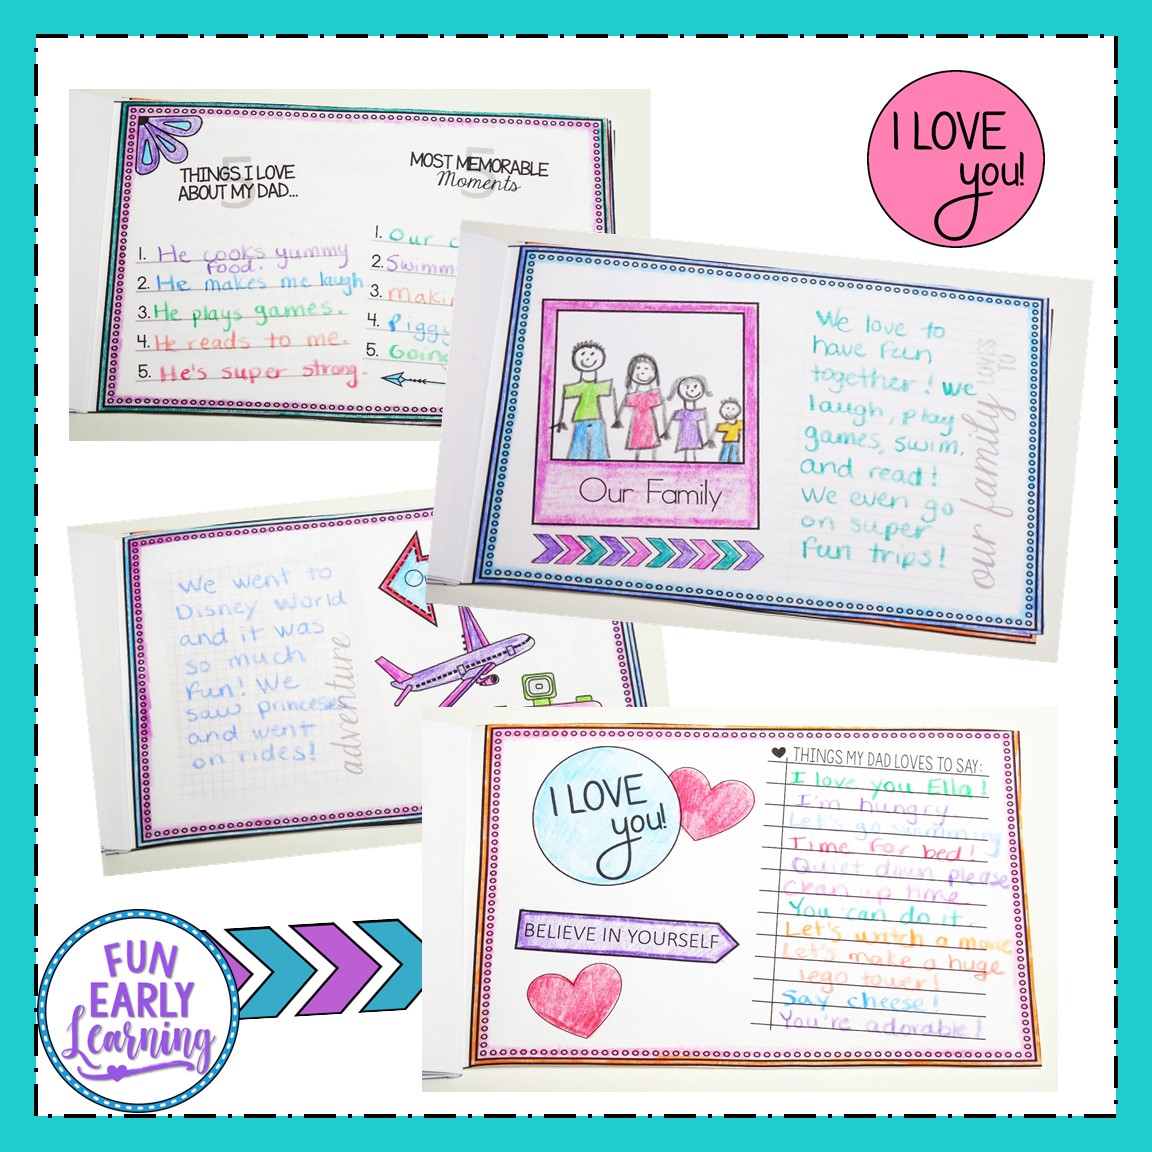 I LOVE
you!
5
THINGS I LOVE
ABOUT MY DAD...
1. He cooks yummy
food.
2. He makes me laugh.
3. He plays games.
4. He reads to me.
5. He's super strong.
5
MOST MEMORABLE
Moments
1. Our
2. Swimm
3. Makin
4. Piggy
5. Going
Our Family
We love to
have fun
together! We
laugh, play
games, swim,
and read!
We even go
on super
fun trips!
our family LOVES
TO
We went to
Disney World
and it was
so much
fun! We
saw princesses
and went
on rides!
adventure
I LOVE
you!
BELIEVE IN YOURSELF
THINGS MY DAD LOVES TO SAY:
I love you Ella!
I'm hungry
Let's go swimming
Time for bed!
Quiet down please
Clean up time
You can do it
Let's watch a movie
Let's make a huge
lego tower!
Say cheese!
You're adorable!
FUN
EARLY
Learning